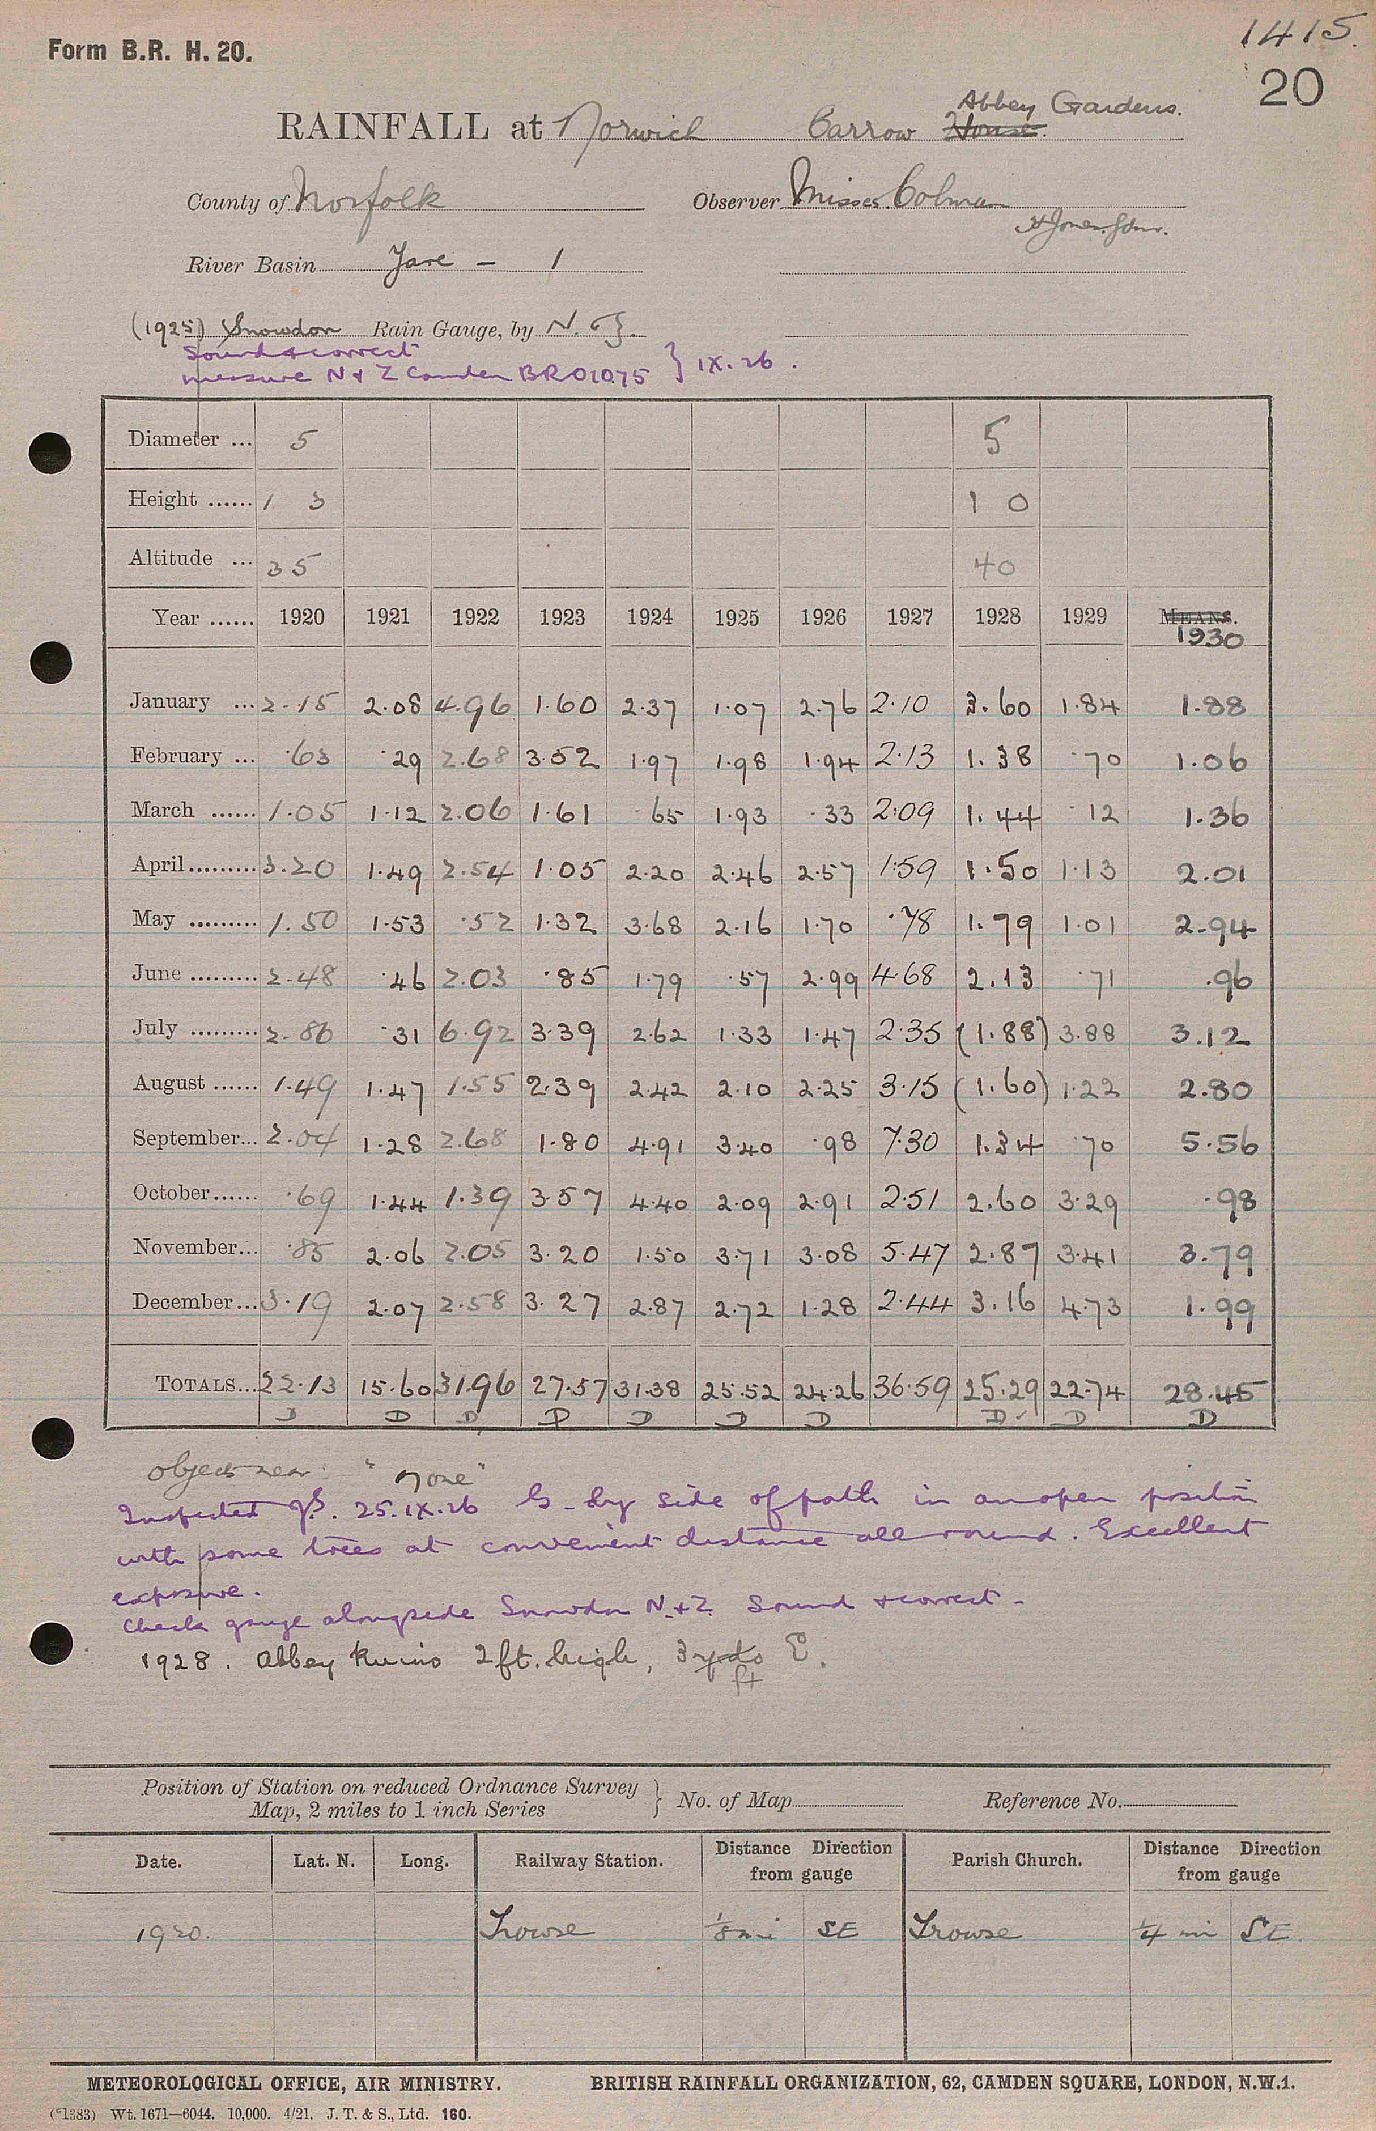 1415.
Form B.R. H. 20.
20
Abbey Gardens.
RAINFALL at Norwich Carrow House.
County of Norfolk Observer Misses Colman
River Basin Yare - 1
(1925) Snowdon Rain Gauge, by N. & Z.
Sound & correct
measure N & Z Camden BR01075 } IX. 26.
Diameter ... 5 5
Height ...... 1 3 1 0
Altitude ... 35 40
Year ...... 1920 1921 1922 1923 1924 1925 1926 1927 1928 1929 MEANS.
1930
January ... 2.15 2.08 4.96 1.60 2.37 1.07 2.76 2.10 3.60 1.84 1.88
February ... .63 .29 2.68 3.52 1.97 1.98 1.94 2.13 1.38 .70 1.06
March ...... 1.05 1.12 2.06 1.61 .65 1.93 .33 2.09 1.44 .12 1.36
April......... 3.20 1.49 2.54 1.05 2.20 2.46 2.57 1.59 1.50 1.13 2.01
May ......... 1.50 1.53 .52 1.32 3.68 2.16 1.70 .78 1.79 1.01 2.94
June ......... 2.48 .46 2.03 .85 1.79 .57 2.99 4.68 2.13 .71 .96
July ......... 2.86 .31 6.92 3.39 2.62 1.33 1.47 2.35 (1.88) 3.88 3.12
August ...... 1.49 1.47 1.55 2.39 2.42 2.10 2.25 3.15 (1.60) 1.22 2.80
September... 2.04 1.28 2.68 1.80 4.91 3.40 .98 7.30 1.34 .70 5.56
October...... .69 1.44 1.39 3.57 4.40 2.09 2.91 2.51 2.60 3.29 .98
November... .85 2.06 2.05 3.20 1.50 3.71 3.08 5.47 2.87 3.41 3.79
December... 3.19 2.07 2.58 3.27 2.87 2.72 1.28 2.44 3.16 4.73 1.99
TOTALS... 22.13 15.60 31.96 27.57 31.38 25.52 24.26 36.59 25.29 22.74 28.45
D D D D D D D D D D
Objects near "None"
Inspected 25.IX.26 G. by side of path in an open position
with some trees at convenient distance all round. Excellent
exposure.
Check gauge alongside Snowdon N. & Z. Sound & correct -
1928. Abbey Ruins 2 ft. high, 3 yds E.
ft
Position of Station on reduced Ordnance Survey
Map, 2 miles to 1 inch Series } No. of Map Reference No.
Date. Lat. N. Long. Railway Station. Distance Direction from gauge Parish Church. Distance Direction from gauge
1920. Trowse 1/8 mi SE Trowse 1/4 mi SE.
METEOROLOGICAL OFFICE, AIR MINISTRY. BRITISH RAINFALL ORGANIZATION, 62, CAMDEN SQUARE, LONDON, N.W.1.
(*1383) Wt. 1671—6044. 10,000. 4/21. J. T. & S., Ltd. 160.